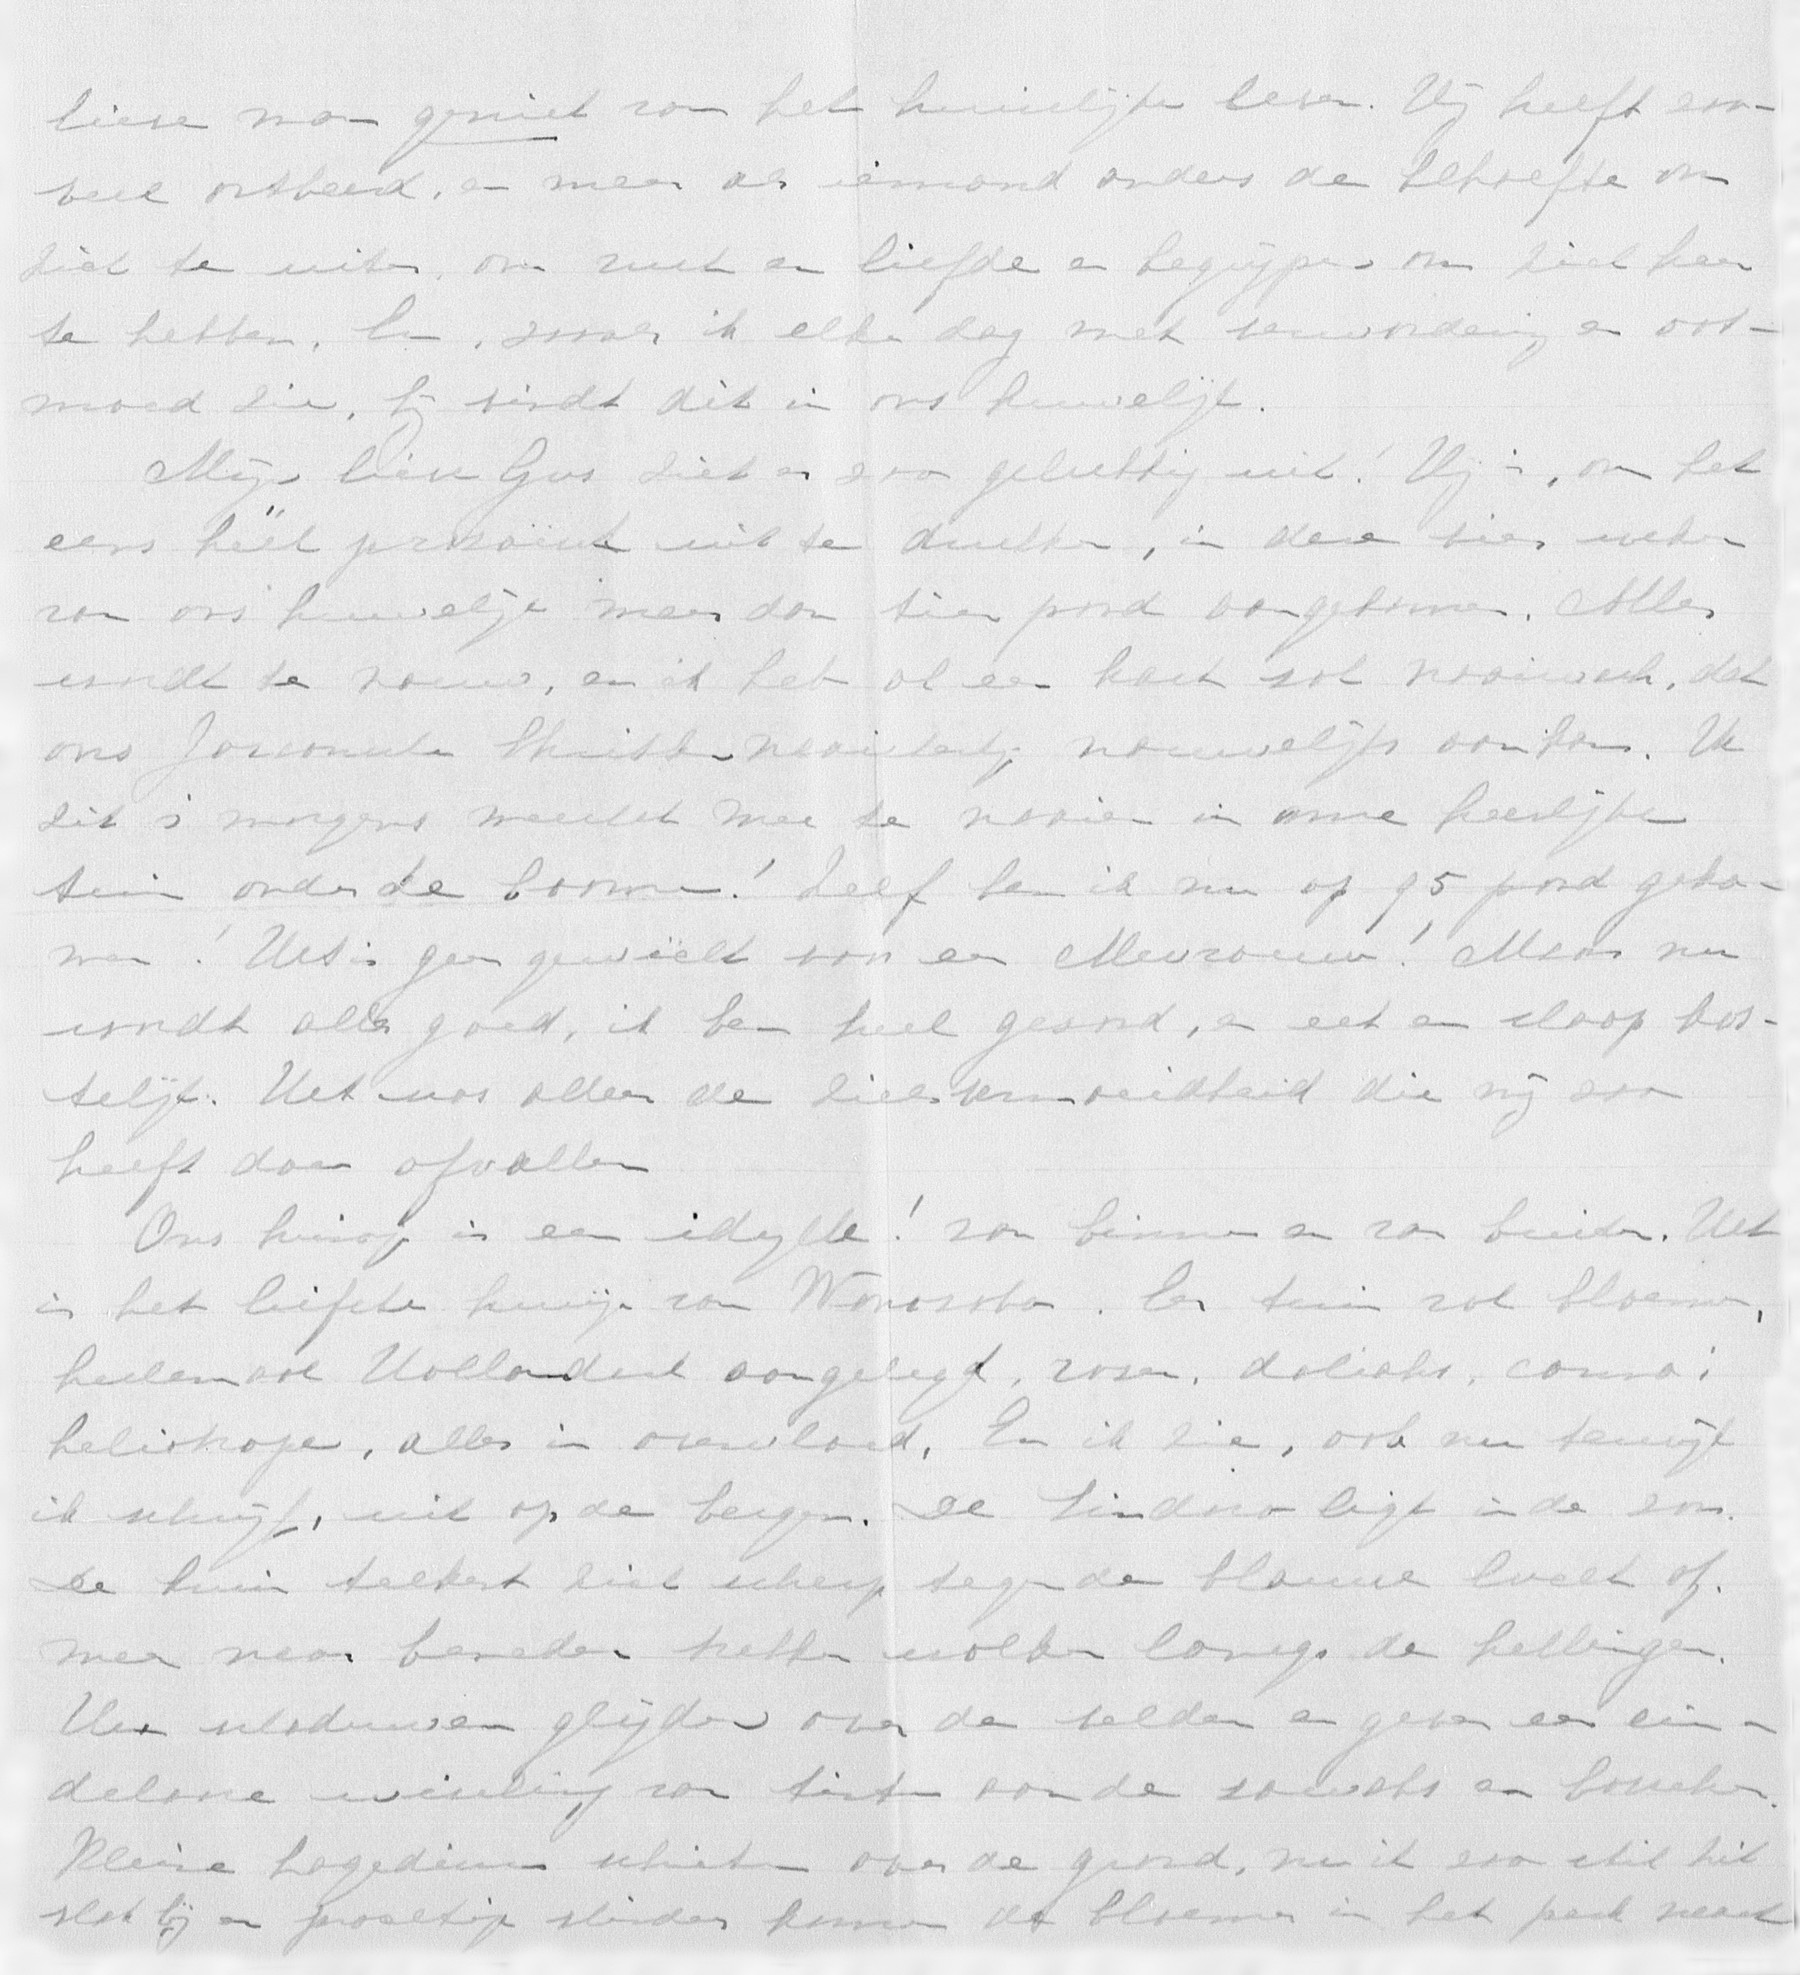 lieve man geniet van het huiselijke leven. Hij heeft zoo-
veel ontbeerd, en meer als iemand anders de behoefte om
zich te uiten, om rust en liefde en begrijpen om zich heen
te hebben. En, zooals ik elken dag met verwondering en oot-
moed zie, hij vindt dit in ons huwelijk.
Mijn lieve Gus ziet er zoo gelukkig uit! Hij is, om het
eens héél prozaïsch uit te drukken, in deze vier weken
van ons huwelijk meer dan tien pond aangekomen. Alles
wordt te nauw, en ik heb al een kast vol naaiwerk, dat
ons Javaansche naaistertje nauwelijks aan kan. Ik
zit 's morgens meestal mee te naaien in onze heerlijke
tuin onder de boomen! Zelf ben ik nu op 95 pond geko-
men! Het is geen gewicht voor een Mevrouw! Maar nu
wordt alles goed, ik ben heel gezond, en eet en slaap kos-
telijk. Het was alleen de zielsvermoeidheid die mij zoo
heeft doen afvallen
Ons huisje is een idylle! van binnen en van buiten. Het
is het liefste huisje van Wonosobo. Een tuin vol bloemen,
heelemaal Hollandsch aangelegd, rozen, dahlia's, canna's
heliotrope, alles in overvloed. En ik zie, ook nu terwijl
ik schrijf, uit op de bergen. De Sindoro ligt in de zon.
De kruin teekent zich scherp tegen de blauwe lucht af.
meer naar beneden trekken wolken langs de hellingen.
Hun schaduwen glijden over de velden en geven een ein-
delooze wisseling van tinten aan de sawahs en bosschen.
Kleine hagedissen schieten over de grond, nu ik zoo stil zit
vlak bij en prachtige vlinders komen de bloemen in het perk naast